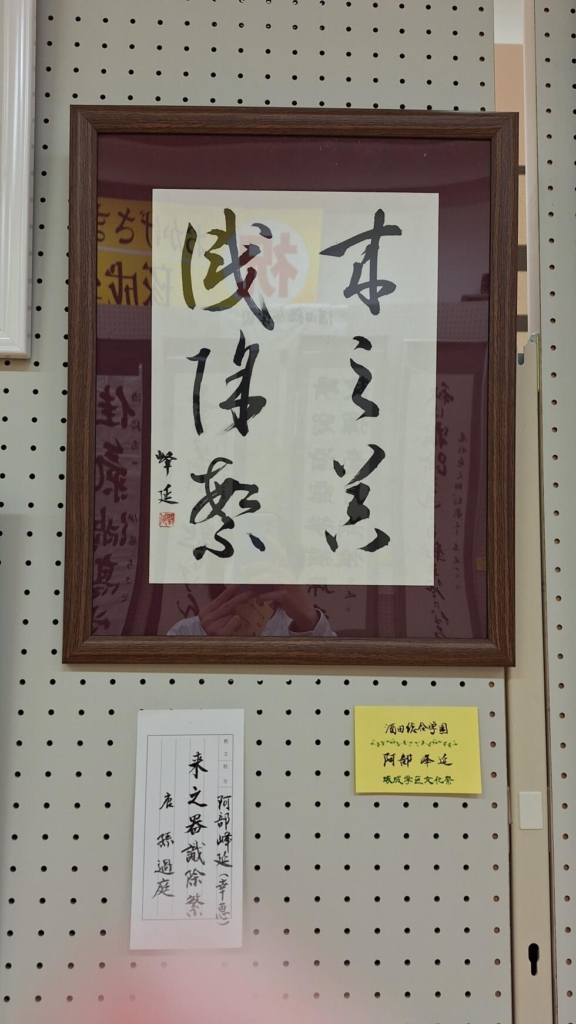 来之器
識除繁
峰延
阿部峰延(幸恵)
来之器識除繁
唐 孫過庭
酒田総合学園
阿部 峰延
琢成学区文化祭